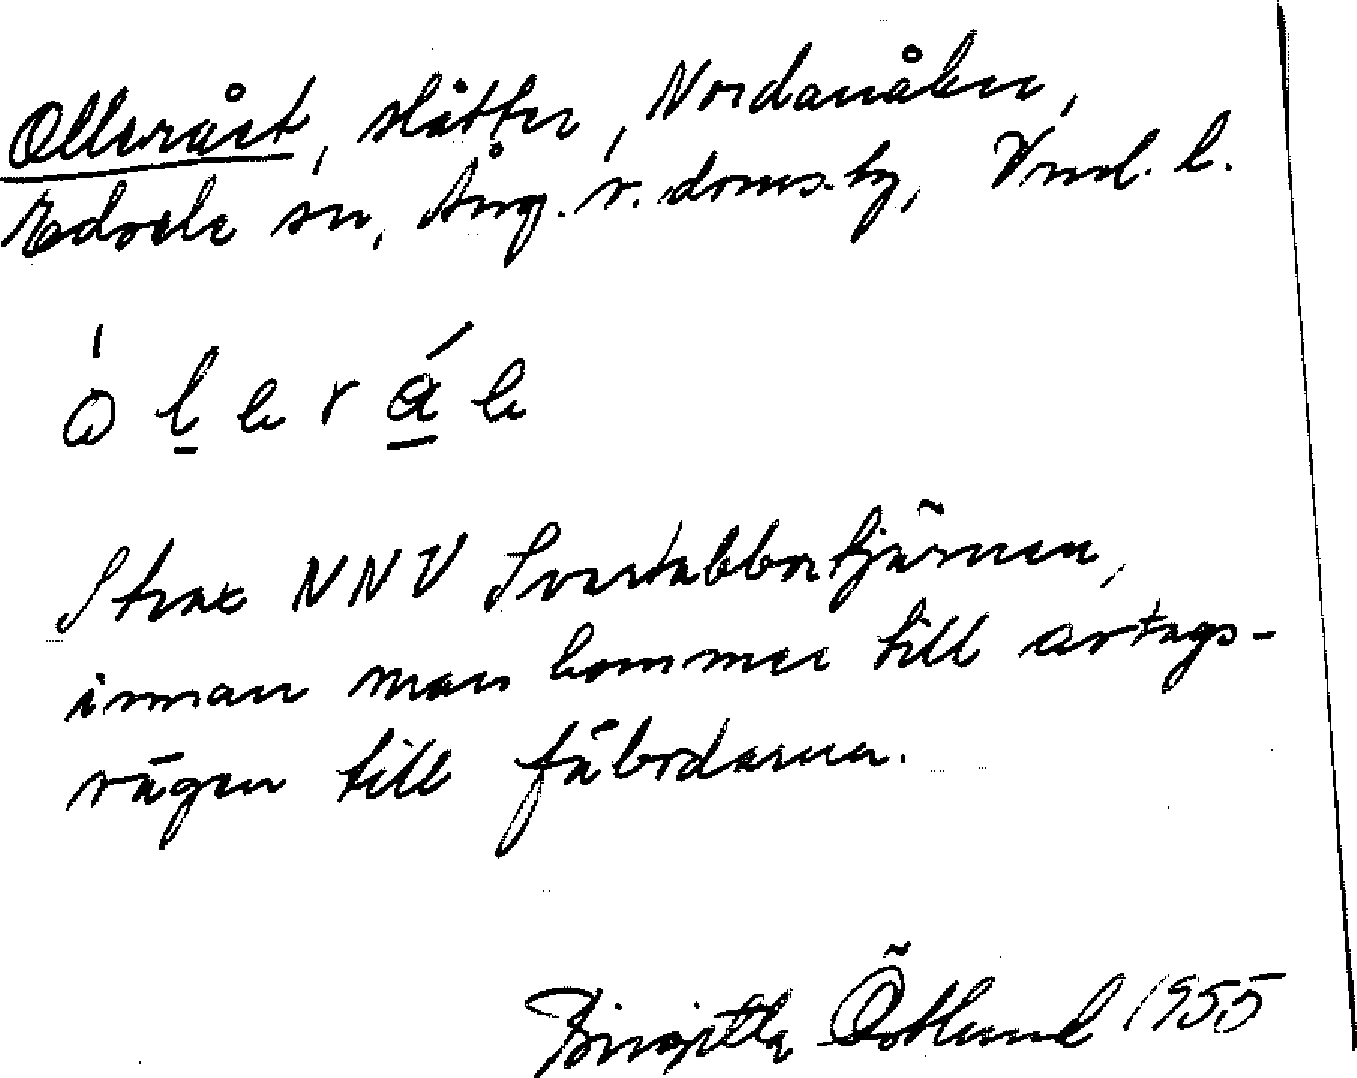 Ollerået, slåtter, Nordanåker,
Edsele sn, Ång. v. doms.by, Vnrl. l.
ò l e r á e
Strax NNV Svartabborrtjärnen,
innan man kommer till avtags-
vägen till fäbodarna.
Birgitta Östlund 1955